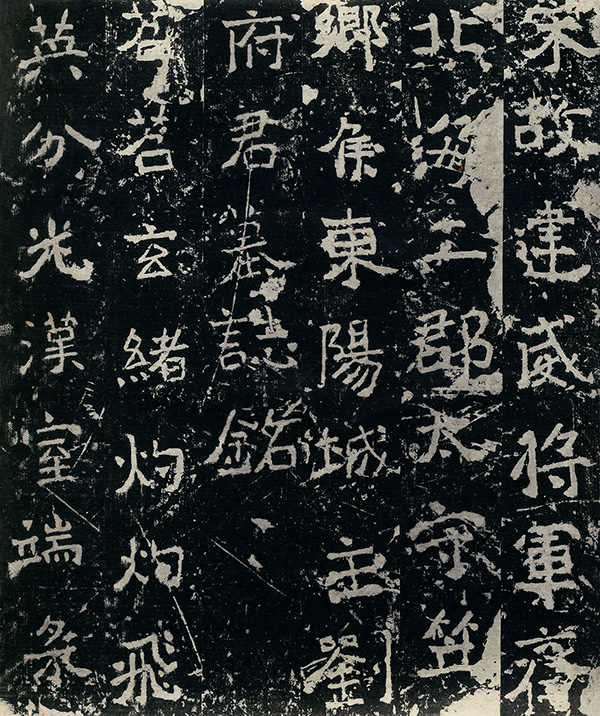 宋故建威将軍齊
北海二郡太守笠
鄉侯東陽城主劉
府君墓誌銘
苕苕玄緒灼灼飛
英分光漢室端